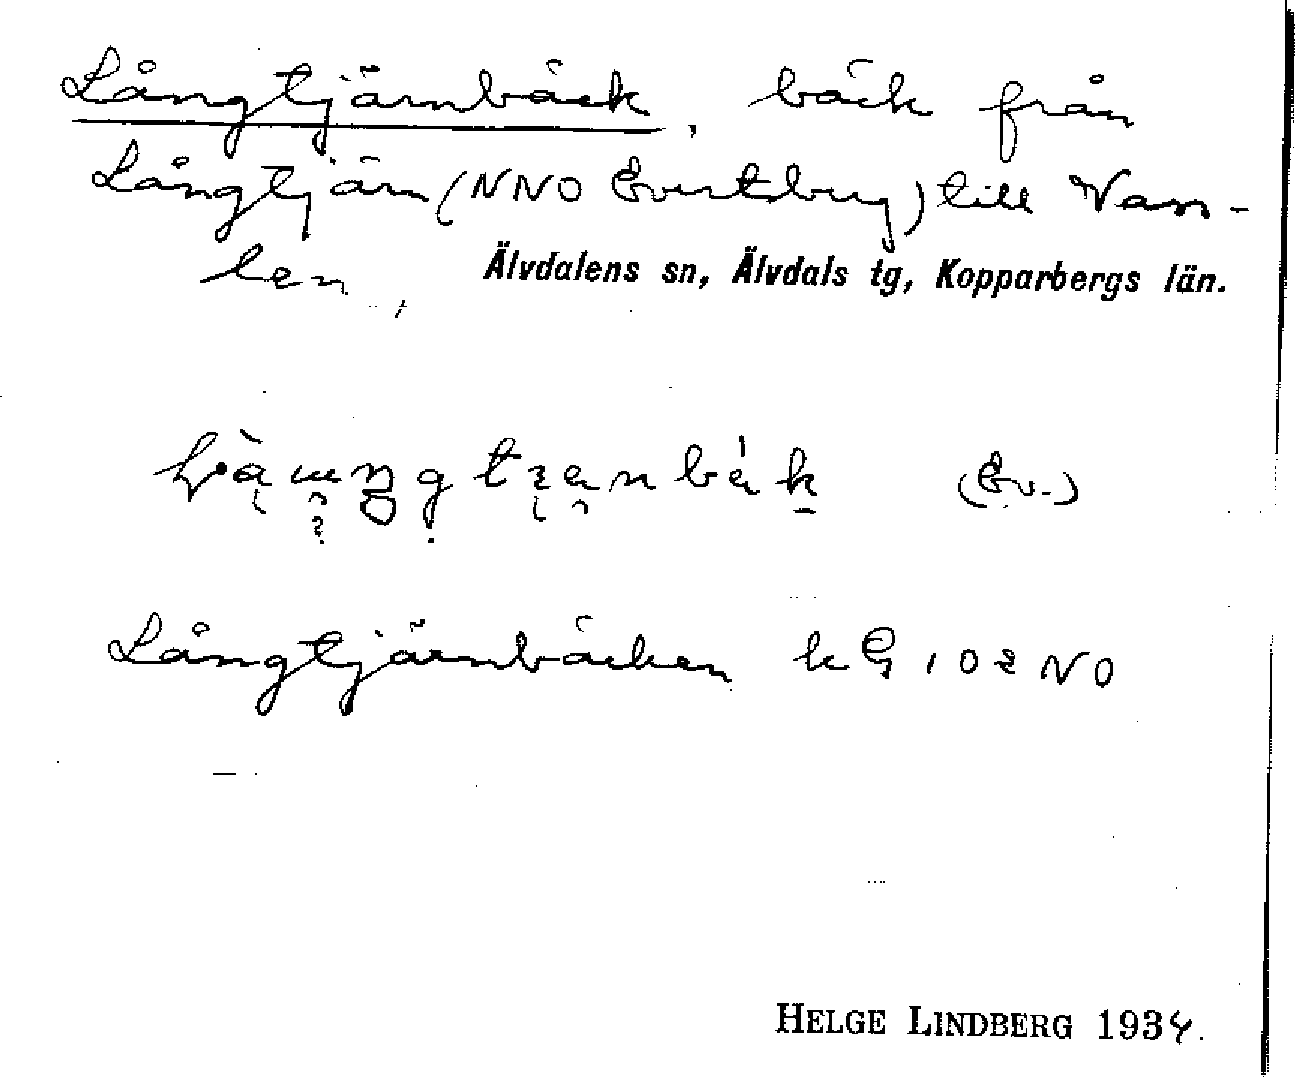 Långtjärnbäck, bäck från
Långtjärn (NNO Evertsberg) till Vass-
len, Älvdalens sn, Älvdals tg, Kopparbergs län.
(Ev.)
Långtjärnbäcken kG 102 NO
HELGE LINDBERG 1934.